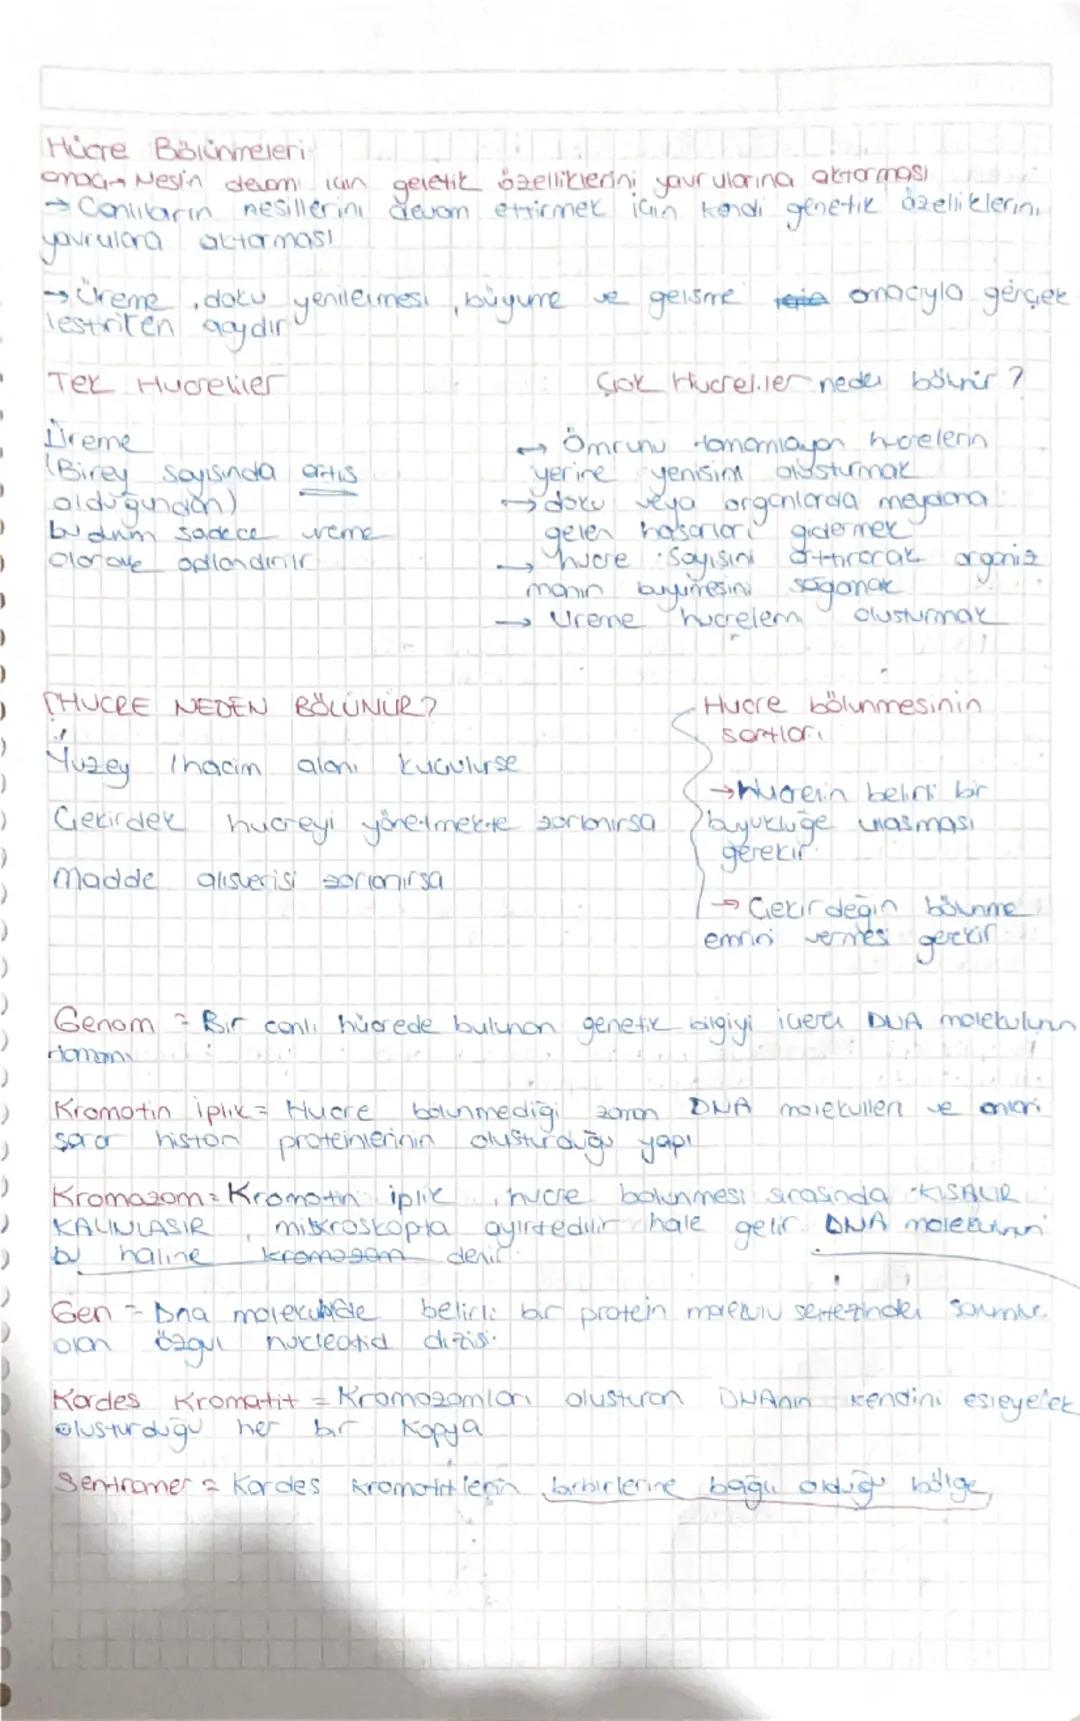 Hücre Bölünmeleri
amaç→ Neslin devamı için genetik özelliklerini yavrularına aktarması
→ Canlıların nesillerini devam ettirmek için kendi genetik özelliklerini
yavrulara aktarması
→ Üreme, doku yenilenmesi, büyüme ve gelişme amacıyla gerçek-
leştirilen
Tek Hucreliler
Üreme
(Birey sayısında artış
olduğundan)
bu durum sadece ureme
olarak adlandırılır
Çok Hucreliler neden bölünür?
→ Ömrunu tamamlayan hucrelerin
yerine yenisini oluşturmak
→ doku veya organlarda meydana
gelen hasarları gidermek
→ hucre sayısını arttırarak organiz
manın buyumesini sağlamak
→ Ureme hucreleri oluşturmak
HUCRE NEDEN BÖLÜNÜR?
Yuzey / hacim alanı kuculurse
Çekirdek hucreyi yönetmekte zorlanırsa
Madde alısverisi zorlanırsa
Hucre bölunmesinin
sartları
→ Hucrenin belirli bir
buyukluğe ulasması
gerekir.
→ Çekirdeğin bölunme
emrini vermesi gerekir
Genom = Bir canlı hücrede bulunan genetik bilgiyi iceren DNA molekulunun
tamamı
Kromotin iplik = Hucre bölunmediği zaman DNA molekulleri ve onları
sarar histon proteinlerinin oluşturduğu yapı
Kromazom = Kromotin iplik, hucre bolunmesi sırasında KISALIR
KALINLASIR, mikroskopla ayırtedilir hale gelir. DNA molekulunun
bu haline kromozom denir
Gen = Dna molekulunde belirli bir protein molekulu sentezinden sorumlu
olan özgul nucleotid dizisi.
Kardes Kromatit = Kromozomları olusturan DNAnın kendini esleyerek
olusturduğu her bir kopya
Sentromer = Kardes kromotitlerin birbirlerine bağlı olduğu bölge